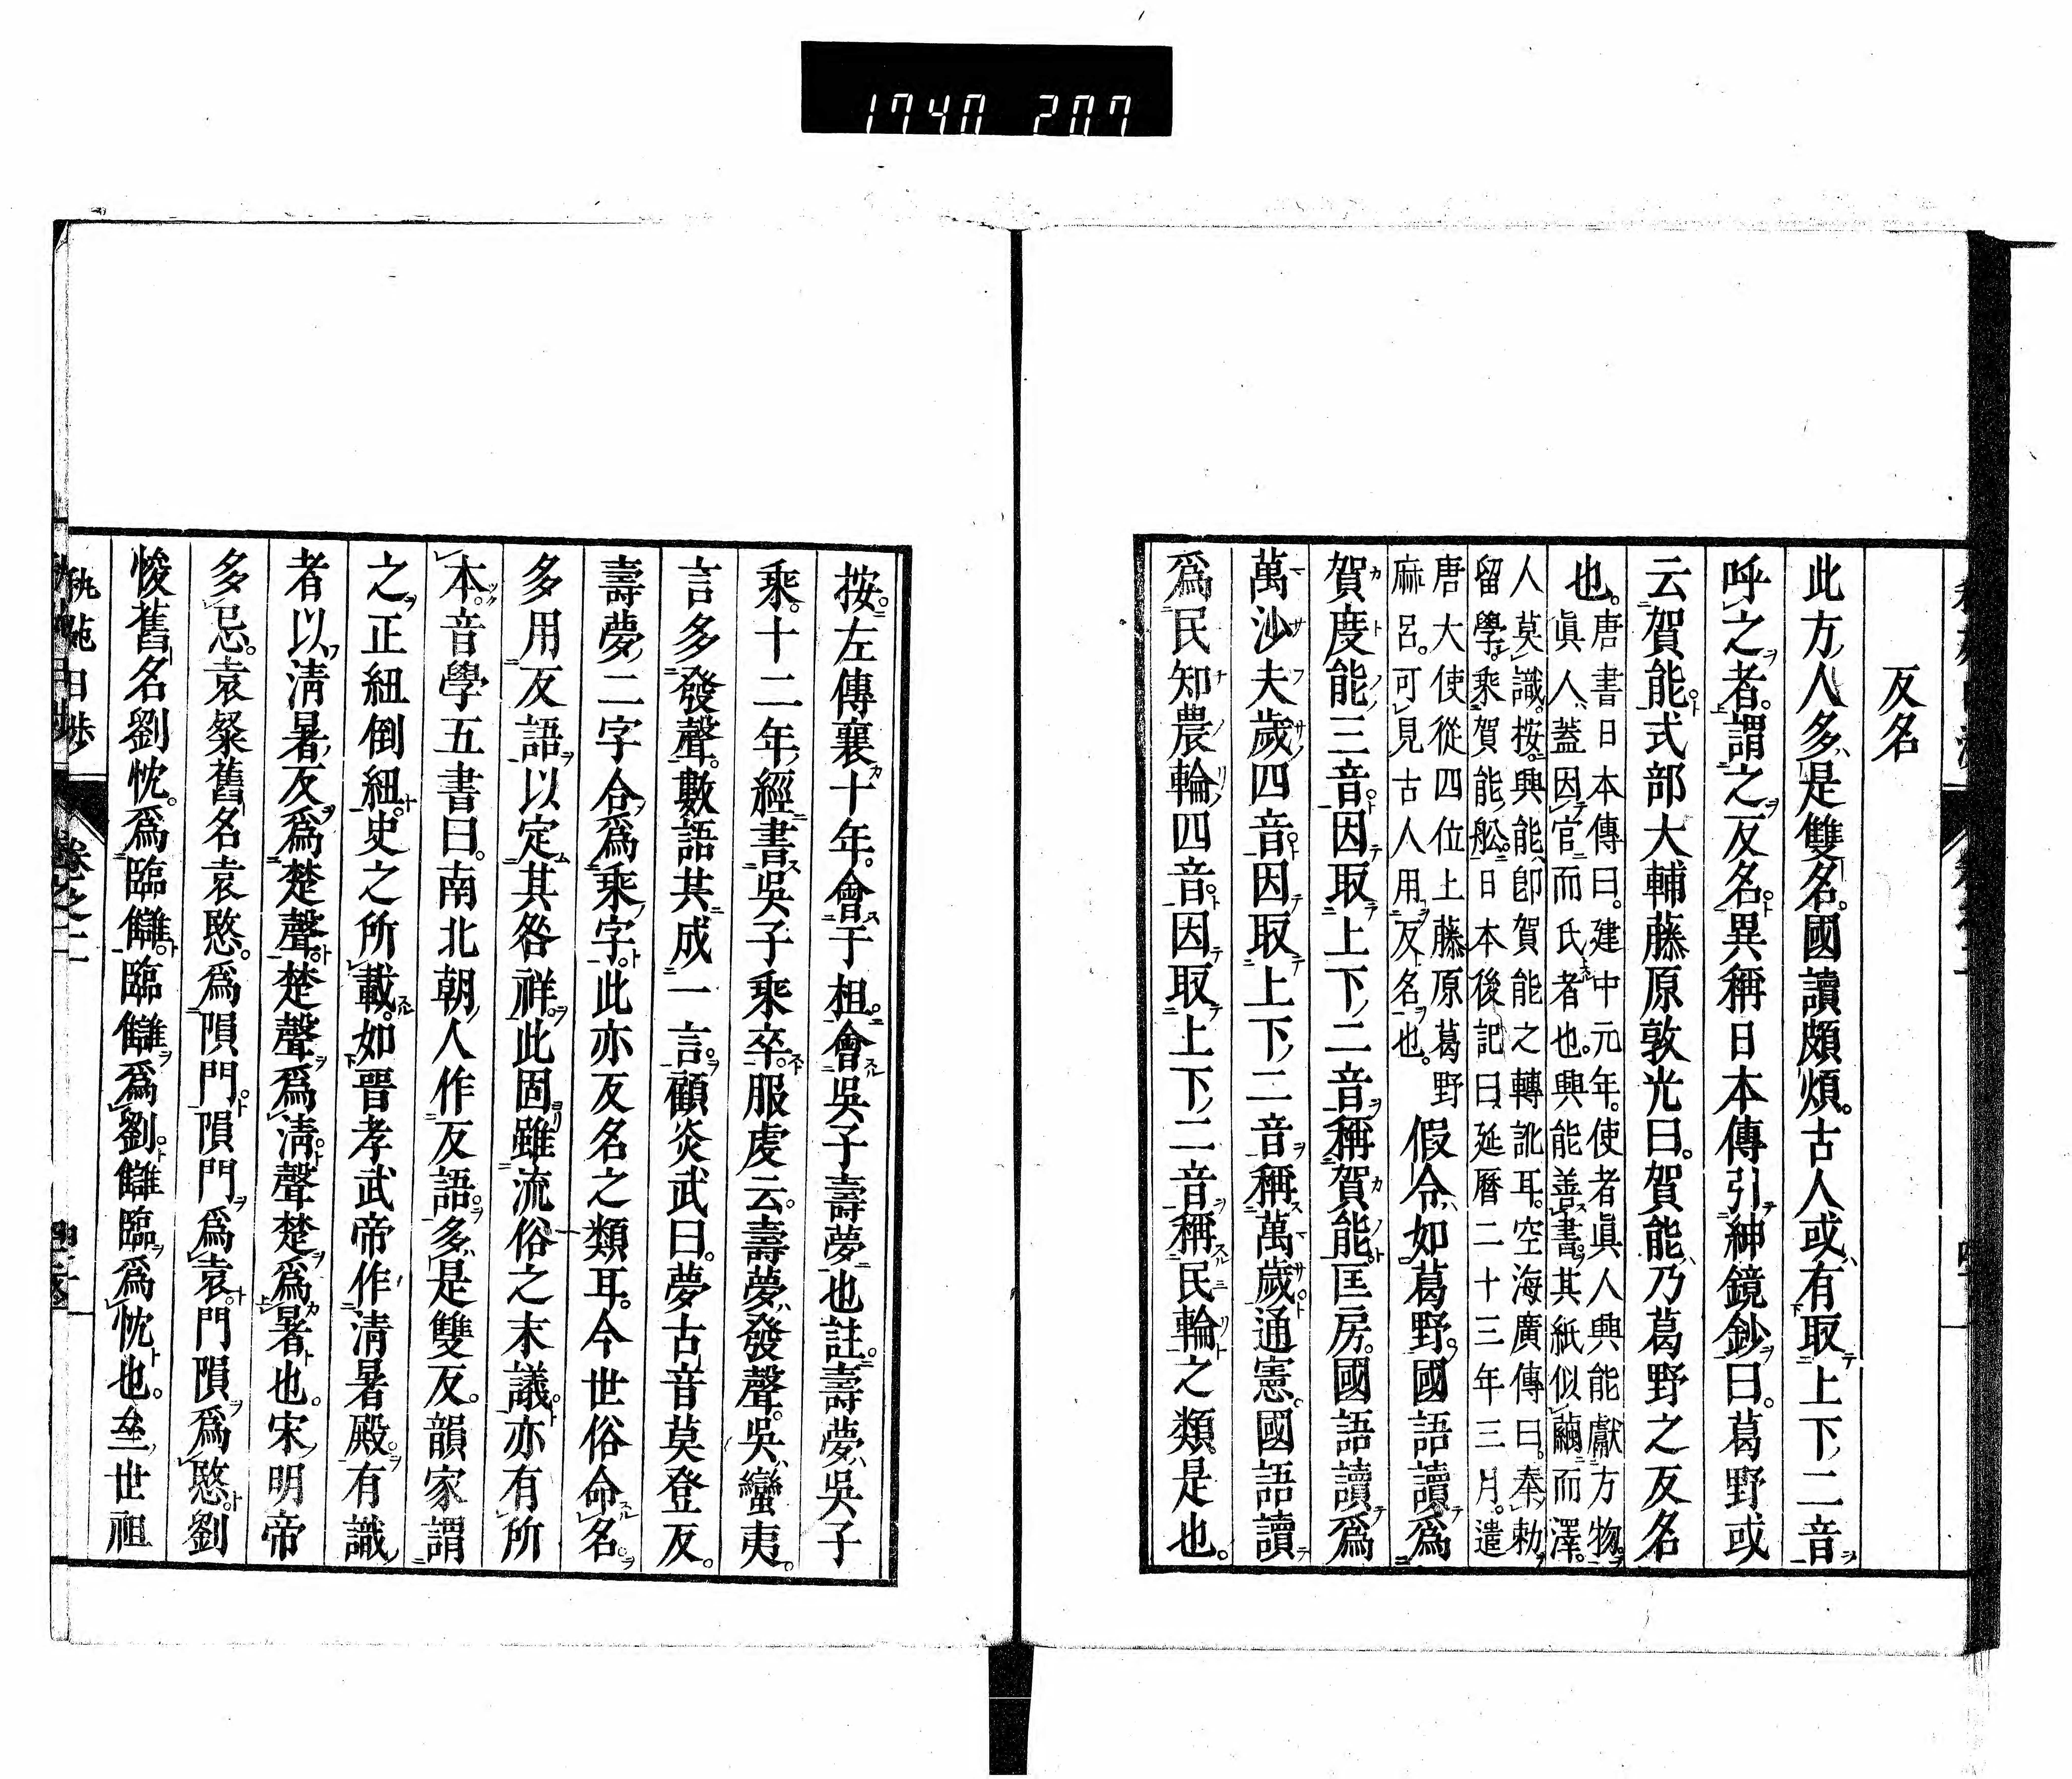 1740 207
反名
此方人多是雙名國讀頗煩古人或有取上下二音
呼之者謂之反名異稱日本傳引紳鏡鈔曰葛野或
云賀能式部大輔藤原敦光曰賀能乃葛野之反名
也
唐書日本傳曰建中元年使者眞人興能獻方物
眞人蓋因官而氏者也興能善書其紙似繭而澤
人莫識按興能卽賀能之轉訛耳空海廣傳曰奉勅
留學乘賀能舩日本後記曰延曆二十三年三月遣
唐大使從四位上藤原葛野
麻呂可見古人用反名也
假令如葛野國語讀爲
賀度能三音因取上下二音稱賀能匡房國語讀爲
萬沙夫歲四音因取上下二音稱萬歲通憲國語讀
爲民知農輪四音因取上下二音稱民輪之類是也
按左傳襄十年會于柤會吳子壽夢也註壽夢吳子
乘十二年經書吳子乘卒服虔云壽夢發聲吳蠻夷
言多發聲數語共成一言顧炎武曰夢古音莫登反
壽夢二字合爲乘字此亦反名之類耳今世俗命名
多用反語以定其咎祥此固雖流俗之末議亦有所
本音學五書曰南北朝人作反語多是雙反韻家謂
之正紐倒紐史之所載如晉孝武帝作清暑殿有識
者以清暑反爲楚聲楚聲爲清聲楚爲暑也宋明帝
多忌袁粲舊名袁愍爲隕門隕門爲袁門隕爲愍劉
悛舊名劉忱爲臨讎臨讎爲劉讎臨爲忱也 世祖
秇苑日涉
卷之二